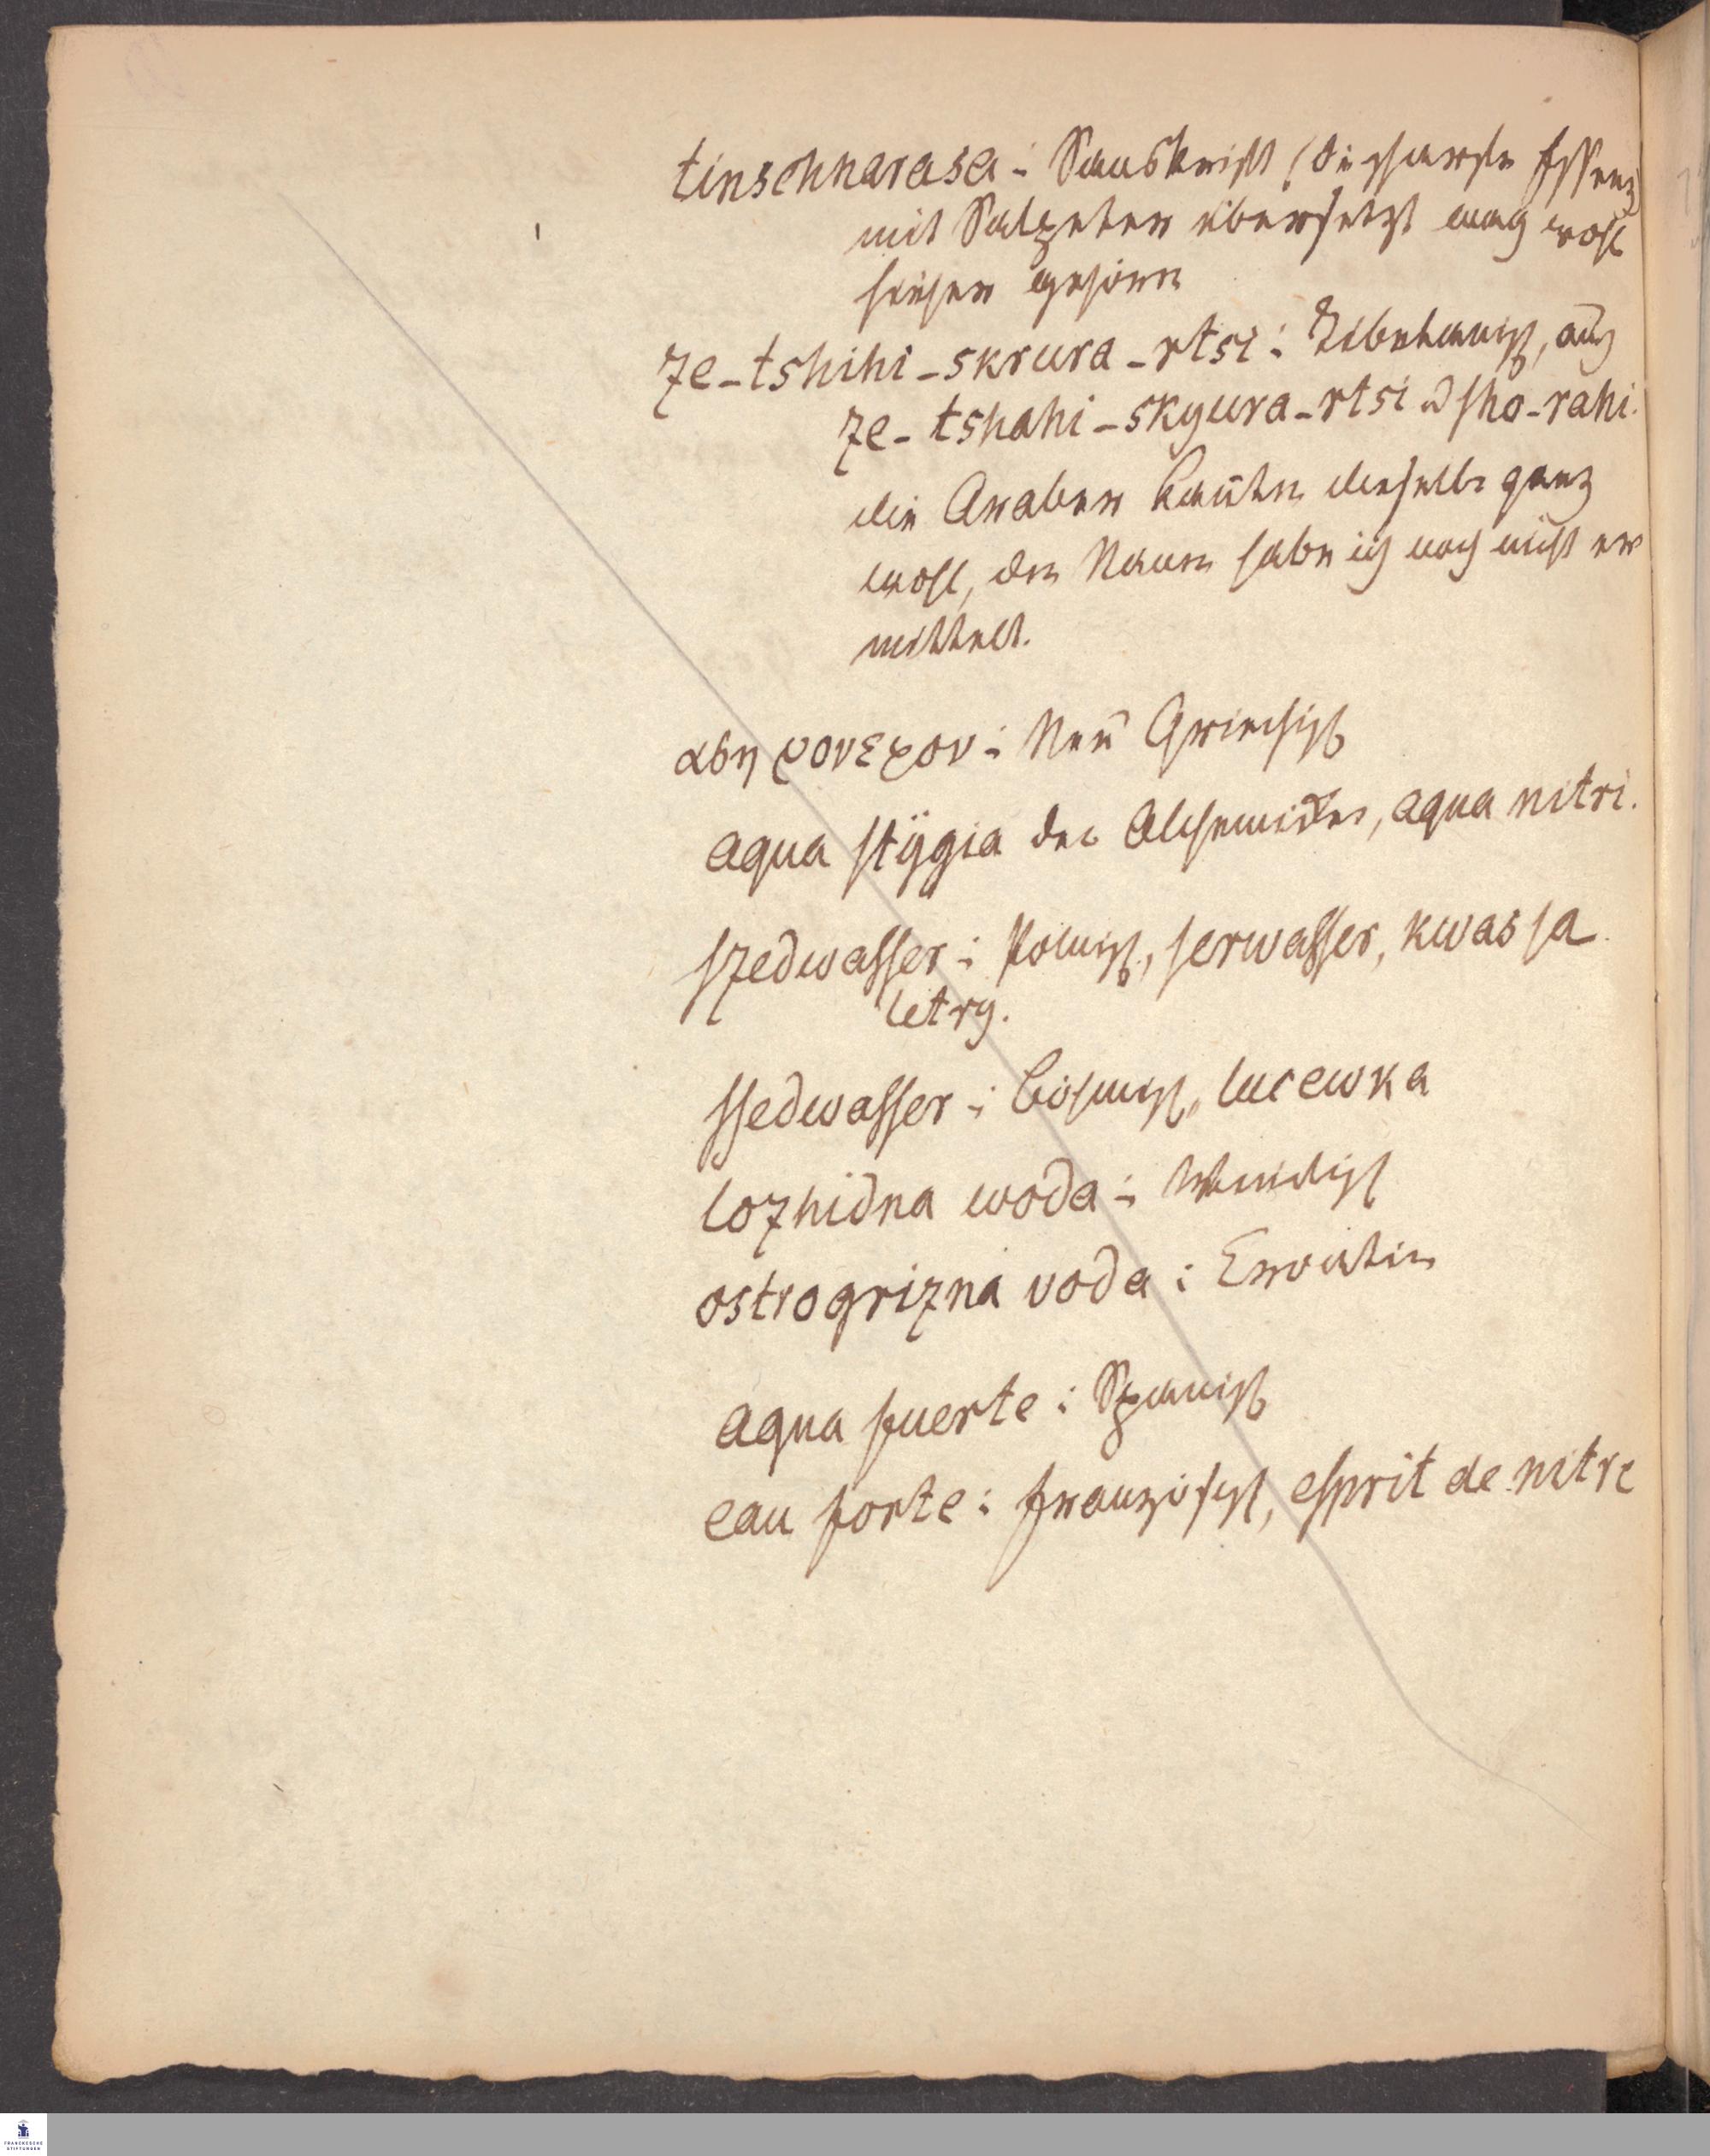 tinschnarasa: Sanskritt (die scharfe Essenz
mit Salpeter übersetzt mag wohl
hieher gehören
ze-tshihi-skrura-rtsi: Tibetanisch, auch
ze-tshahi-skyura-rtsi u sho-rahi.
die Araber kannten dieselbe ganz
wohl, den Namen habe ich noch nicht er
mittelt.
Neu Griechisch
aqua stÿgia der Alchemisten, aqua nitri.
szedwasser: Polnisch, serwasser, kwas sa
letry.
ssedwasser: Böhmisch, lucewka
lozhidna woda: Windisch
ostrogrizna voda: Kroatien
aqua fuerte: Spanisch
eau forte: französisch, esprit de nitre
FRANCKESCHE
STIFTUNGEN